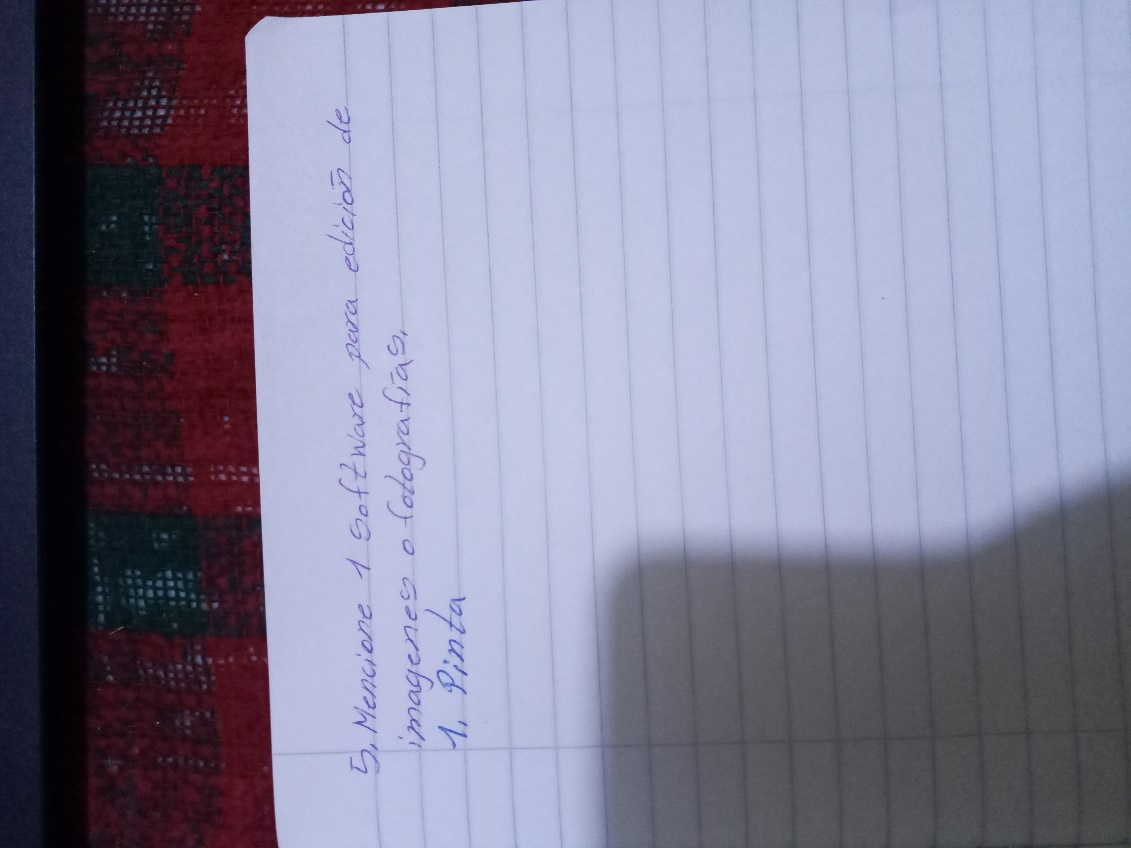 5. Mencione 1 software para edición de
imagenes o fotografías.
1. Pinta